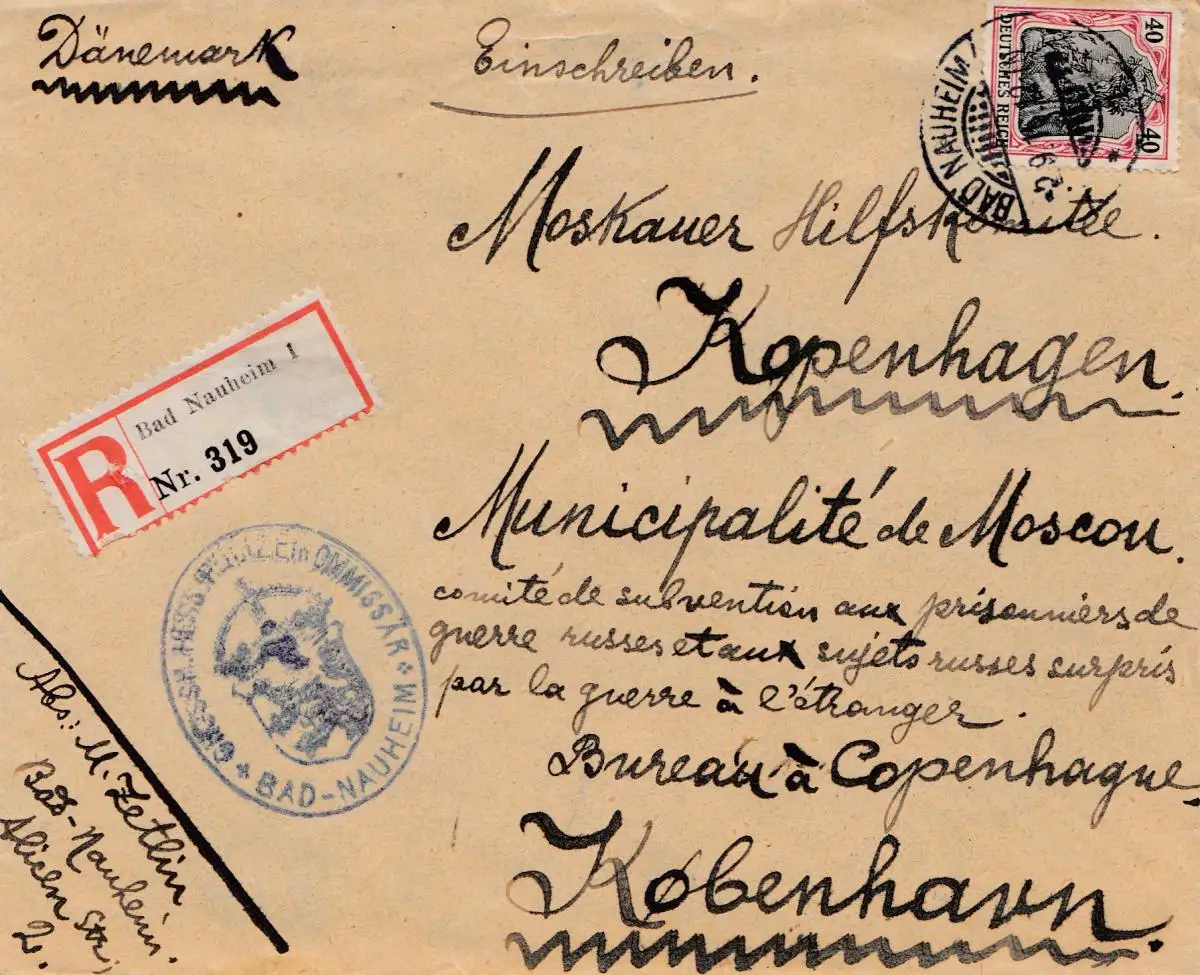 Dänemark
Einschreiben.
40 40
DEUTSCHES REICH
BAD NAUHEIM
Moskauer Hilfskomitee.
Kopenhagen.
Bad Nauheim 1
R Nr. 319
Municipalité de Moscou.
comité de subvention aux prisonniers de
guerre russes et aux sujets russes surpris
par la guerre à l'étranger.
Bureau à Copenhague,
København.
GROSSH. HESS. POLIZEIKOMMISSÄR
* BAD-NAUHEIM *
Abs: M. Zetlin
Bad-Nauheim.
Alicen Str.
2.